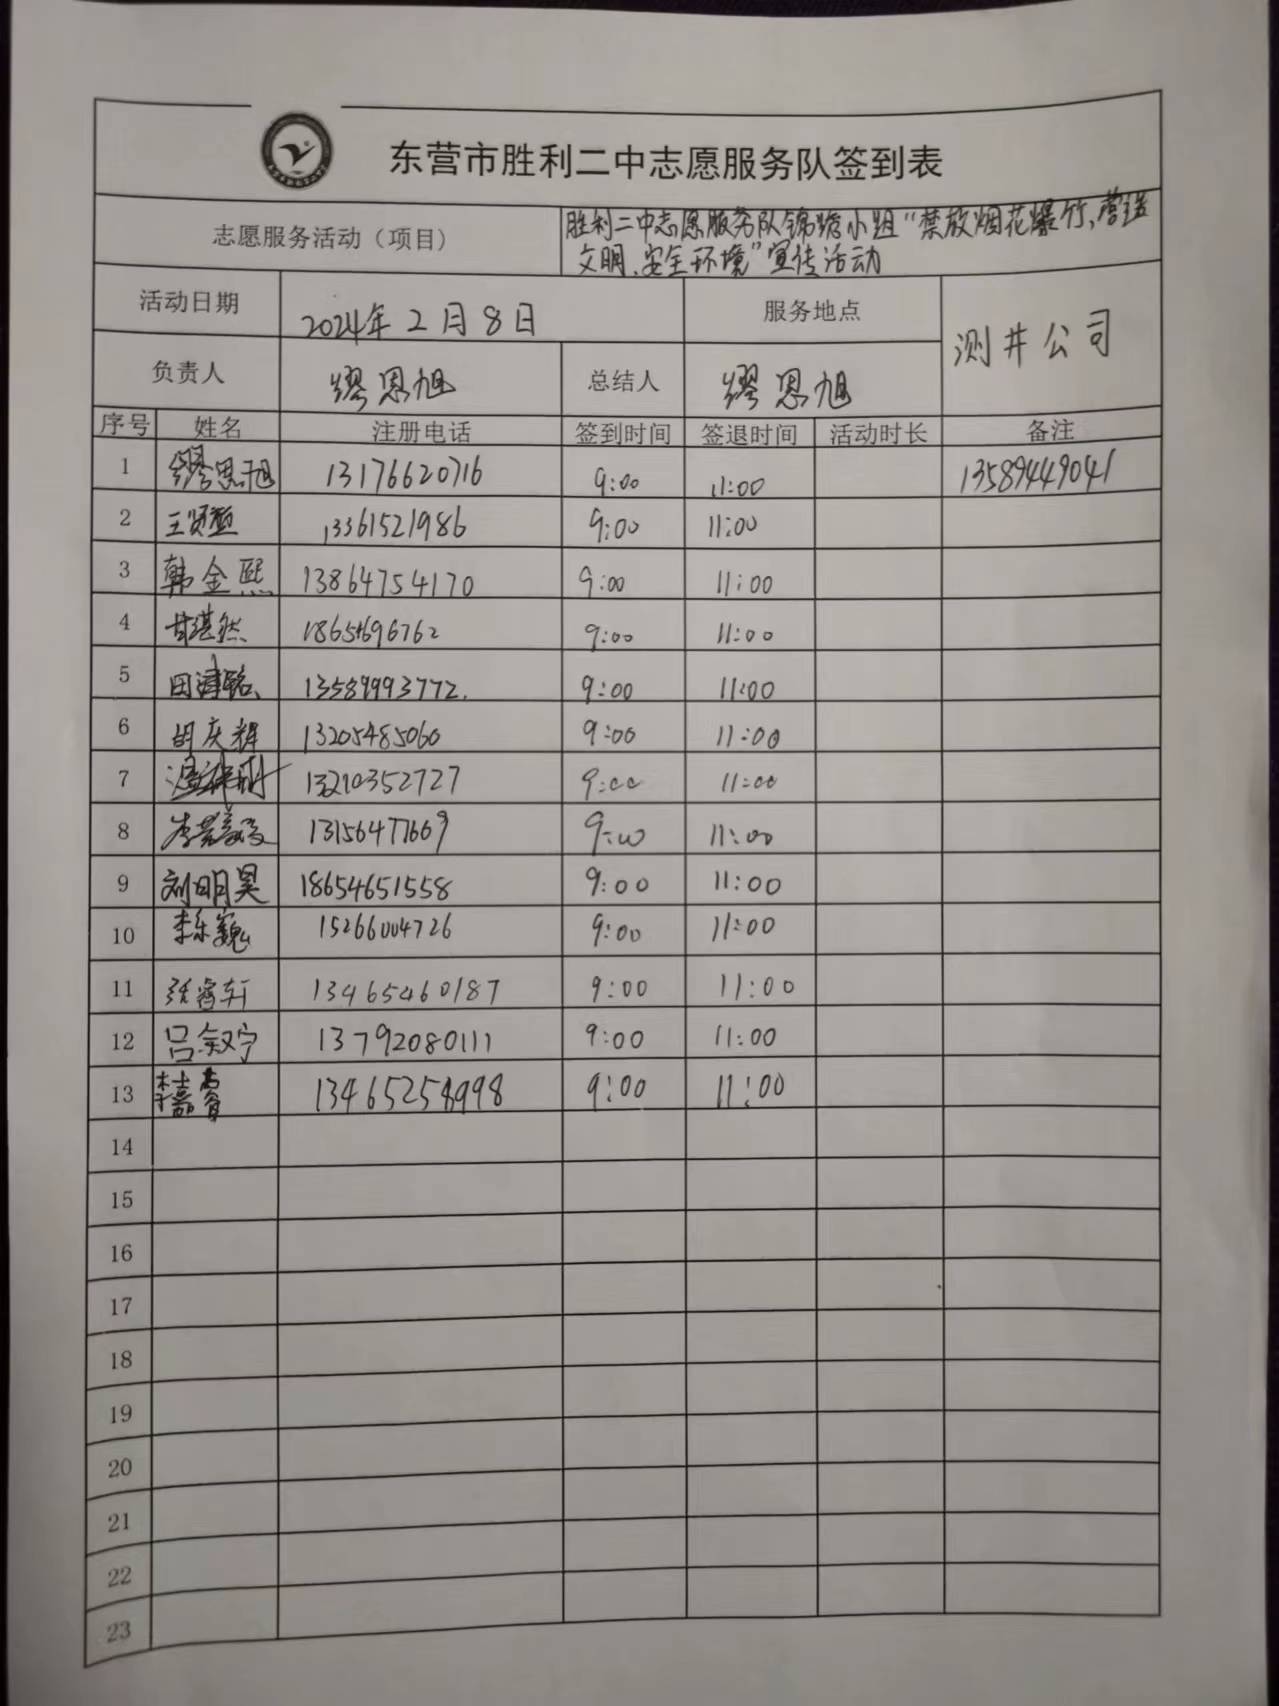 东营市胜利二中志愿服务队签到表
志愿服务活动（项目） 胜利二中志愿服务队锦绣小组“禁放烟花爆竹、营造
文明、安全环境”宣传活动
活动日期 2024年2月8日 服务地点 测井公司
负责人 缪恩旭 总结人 缪恩旭
序号 姓名 注册电话 签到时间 签退时间 活动时长 备注
1 缪恩旭 13176620716 9:00 11:00 13589449041
2 王贤 13361521986 9:00 11:00
3 韩金熙 13864754170 9:00 11:00
4 甘湛然 9:00 11:00
5 田 13589993772. 9:00 11:00
6 胡庆辉 13205485060 9:00 11:00
7 13210352727 9:00 11:00
8 李 13156477669 9:00 11:00
9 刘明昊 18654651558 9:00 11:00
10 李东巍 15266004726 9:00 11:00
11 张睿轩 13465460187 9:00 11:00
12 吕叙宁 13792080111 9:00 11:00
13 9:00 11:00
14
15
16
17
18
19
20
21
22
23